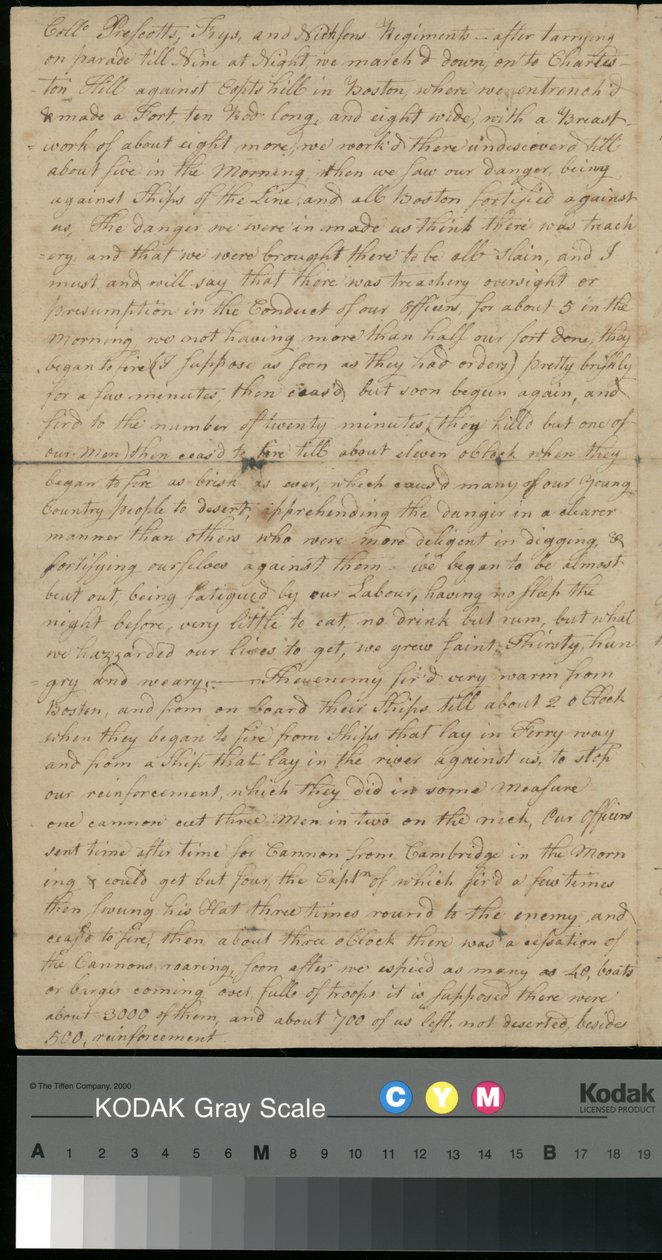 Coll.o Prescotts, Frys, and Nicksons Regiments – after tarrying
on parade till Nine at Night we march'd down, on to Charles-
-ton Hill against Copts hill in Boston, where we entrench'd
& made a Fort, ten Rod long, and eight wide, with a Breast-
-work of about eight more, we work'd there undiscover'd till
about five in the Morning, then we saw our danger, being
against Ships of the Line, and all Boston fortified against
us, The danger we were in made us think there was treach
-ery and that we were brought there to be all slain, and I
must and will say that there was treachery oversight or
presumption in the Conduct of our Officers, for about 5 in the
Morning, we not having more than half our fort done, they
began to fire (I suppose as soon as they had orders) pretty briskly
for a few minutes, then ceas'd, but soon begun again, and
fird to the number of twenty minutes, (they killd but one of
our Men) then ceas'd to fire till about eleven oClock when they
began to fire as brisk as ever, which caus'd many of our young
Country people to desert, apprehending the danger in a clearer
manner than others who were more diligent in digging, &
fortifying ourselves against them – we began to be almost
beat out, being fatigued by our Labour, having no sleep the
night before, very little to eat, no drink but rum, but what
we hazzarded our lives to get, we grew faint, Thirsty, hun
-gry and weary. — The enemy fir'd very warm from
Boston, and from on board their Ships till about 2 oClock
when they began to fire from Ships that lay in Ferry way
and from a Ship that lay in the river against us, to stop
our reinforcement, which they did in some Measure
one cannon cut three Men in two on the neck, Our Officers
sent time after time for Cannon from Cambridge in the Morn
ing & could get but four, the Captn of which fir'd a few times
then swung his Hat three times round to the enemy and
ceas'd to fire, then about three oClock there was a cessation of
the Cannons roaring, soon after we espied as many as 40, boats
or barges coming over full of troops it is supposed there were
about 3000 of them, and about 700 of us left, not deserted, besides
500, reinforcement
© The Tiffen Company, 2000
KODAK Gray Scale
C Y M
Kodak
LICENSED PRODUCT
A 1 2 3 4 5 6 M 8 9 10 11 12 13 14 15 B 17 18 19